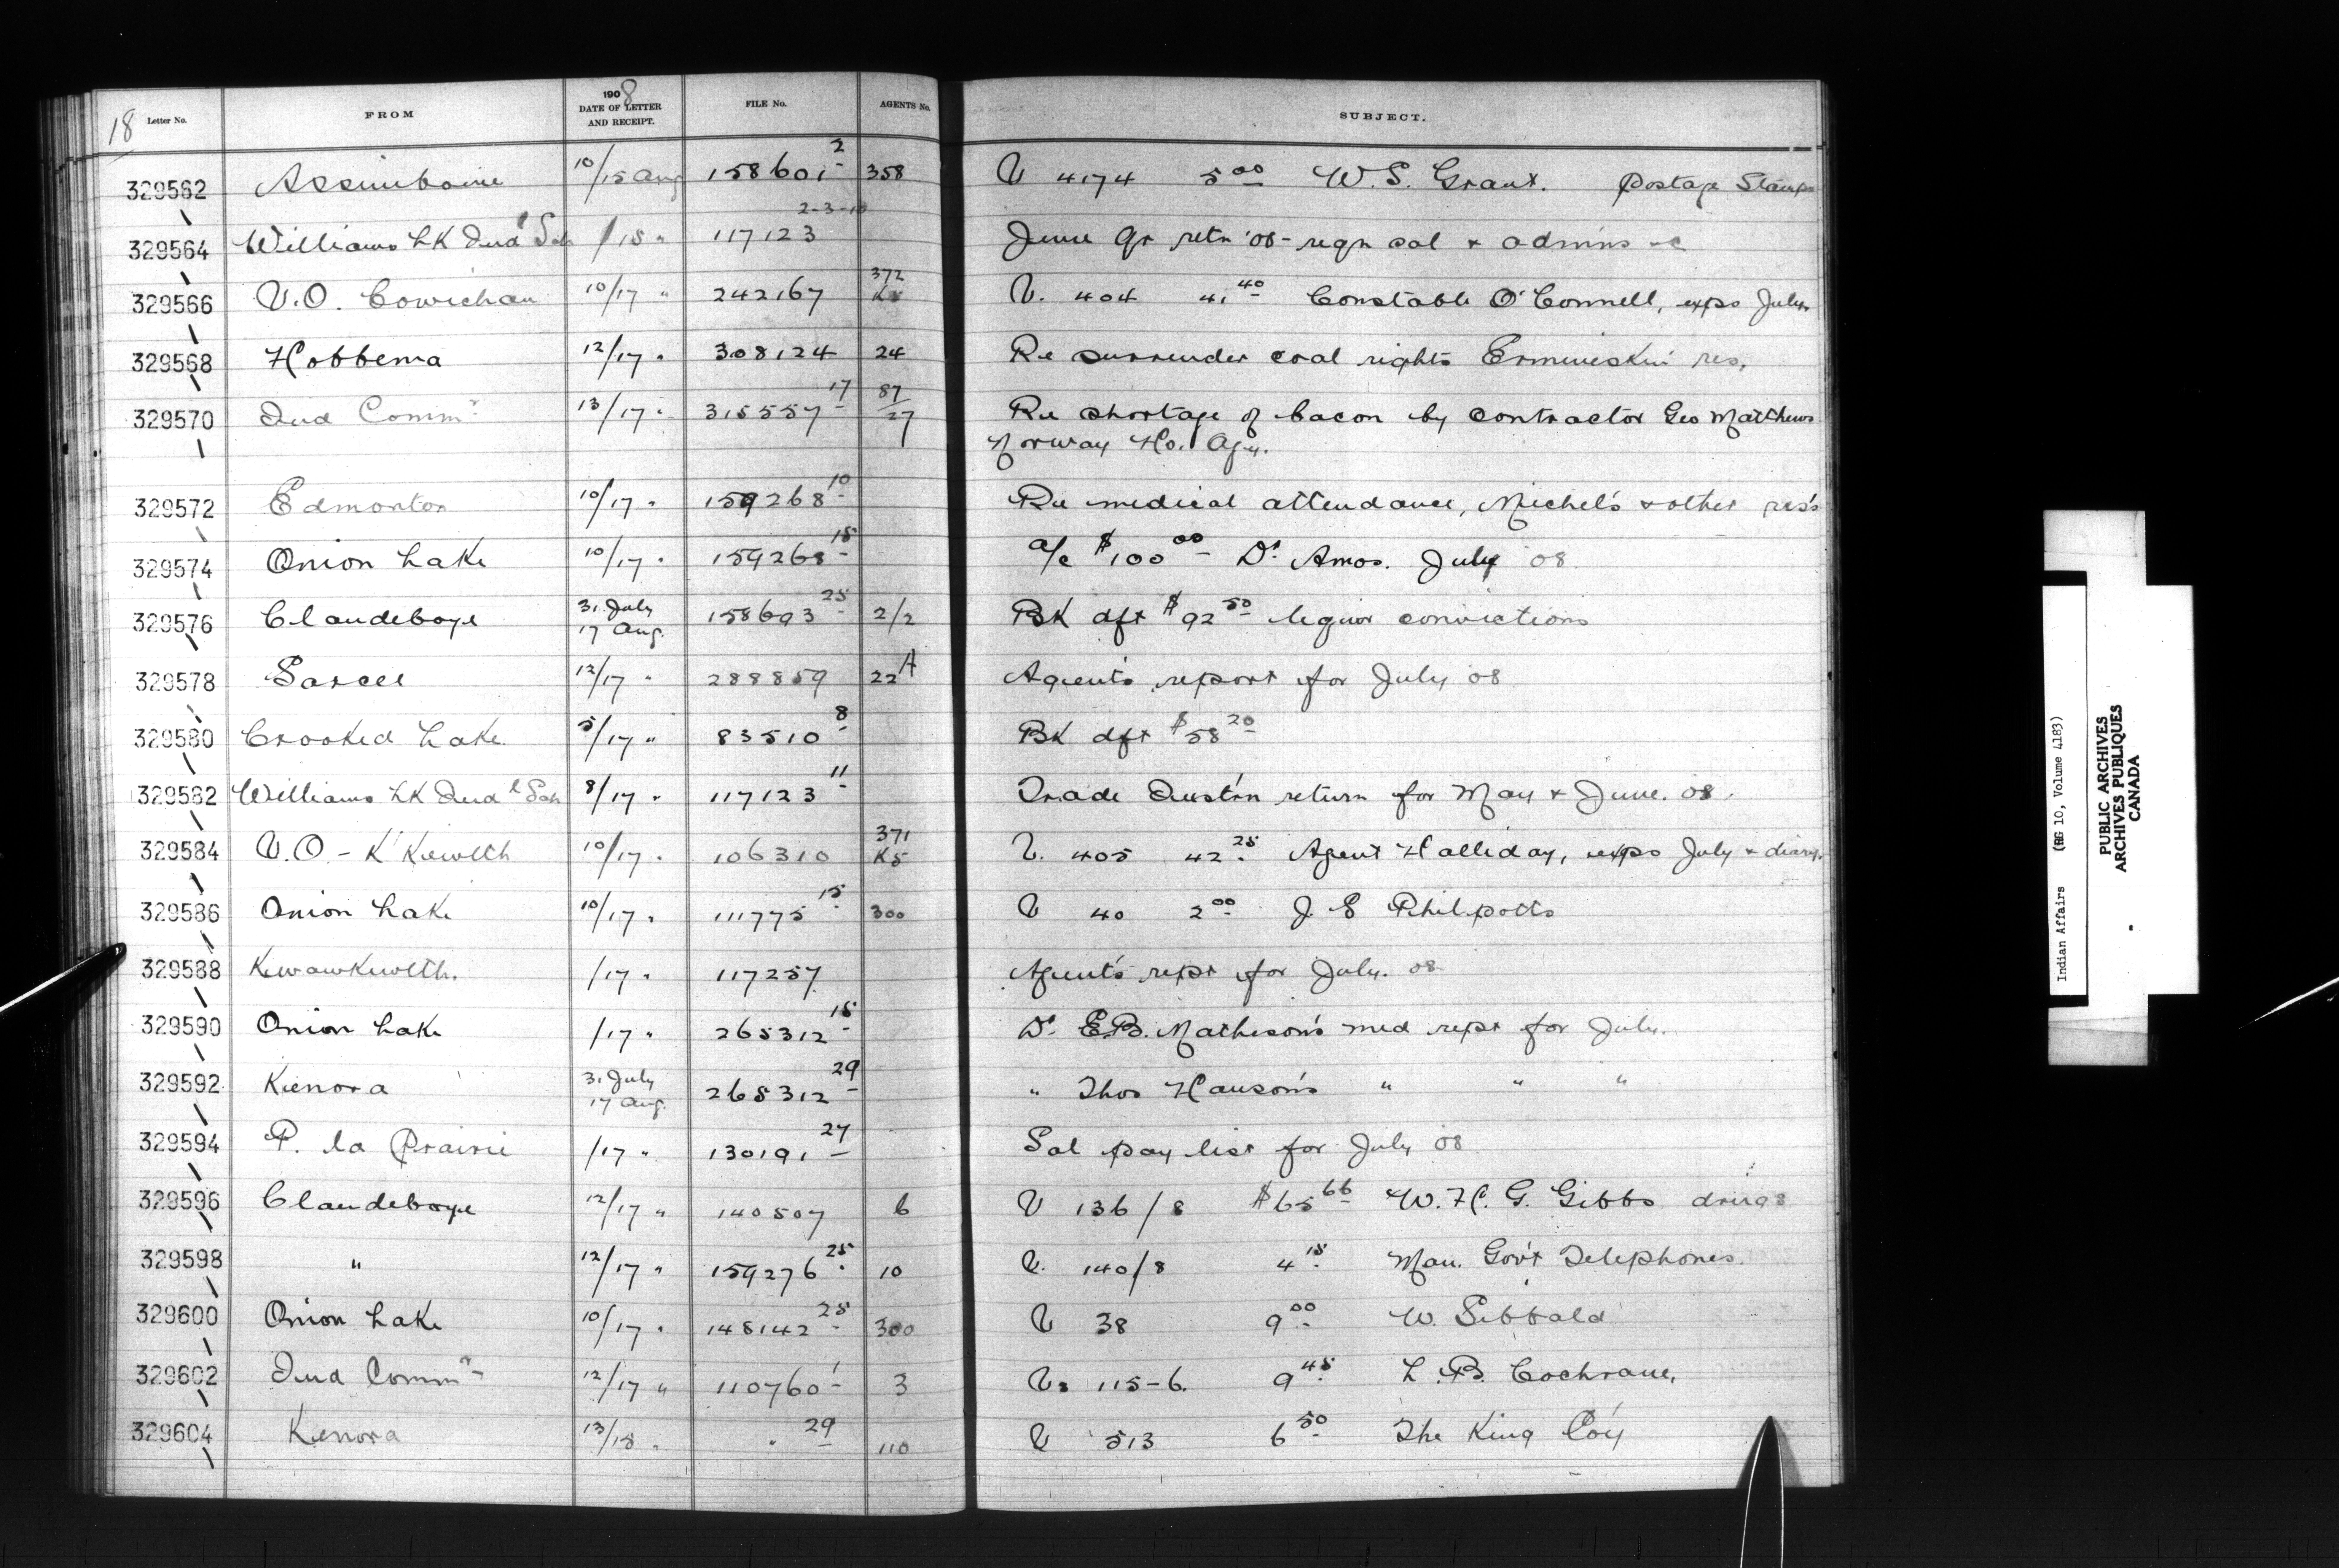 18 Letter No. FROM 1908 DATE OF LETTER AND RECEIPT. FILE No. AGENTS No. SUBJECT.
329562 Assiniboine 10/15 Aug 158601-2 358 V 4174 5.00 W. S. Grant. Postage Stamps
329564 Williams LK Indl Sch /15 " 117123 2-3-10 June Qr retn '08 - regn sal & admns &c
329566 V.O. Cowichan 10/17 " 242167 372 K V. 404 41.40 Constable O'Connell, exps July
329568 Hobbema 12/17 " 308124 24 Re surrender coal rights Ermineskin res.
329570 Ind Commr 13/17 " 315557-17 87/27 Re shortage of bacon by contractor Geo Matthews
Norway Ho. Agy.
329572 Edmonton 10/17 " 159268-10 Re medical attendance, Michel's & other res's
329574 Onion Lake 10/17 " 159268-15 a/c $100.00 Dr. Amos. July 08
329576 Clandeboye 31 July 17 Aug. 158693-25 2/2 BK dft $92.50 liquor convictions
329578 Sarcee 12/17 " 288859 22A Agent's report for July 08
329580 Crooked Lake 5/17 " 83510-8 BK dft $58.20
329582 Williams LK Indl Sch 8/17 " 117123-11 Trade Inst'n return for May & June. 08.
329584 V.O. - K'Kewlth 10/17 " 106310 371 K5 V. 405 42.25 Agent Halliday, exps July & diary
329586 Onion Lake 10/17 " 111775-15 300 V 40 2.00 J. E Philpotts
329588 Kwawkewlth. /17 " 117257 Agent's rept for July. 08
329590 Onion Lake /17 " 265312-15 Dr. E.B. Matheson's med rept for July.
329592 Kenora 31 July 17 Aug. 265312-29 " Thos Hanson's " " "
329594 P. la Prairie /17 " 130191-27 Sal pay list for July 08
329596 Clandeboye 12/17 " 140507 6 V 136/8 $65.66 W. H. G. Gibbs drugs
329598 " 12/17 " 159276-25 10 V. 140/8 4.15 Man. Gov't Telephones.
329600 Onion Lake 10/17 " 148142-25 300 V 38 9.00 W. Sibbald
329602 Ind Commr 12/17 " 110760-1 3 Vs 115-6. 9.45 L. B. Cochrane,
329604 Kenora 13/18 " " 29 110 V 513 6.50 The King Co'y
Indian Affairs (RG 10, Volume 4183)
PUBLIC ARCHIVES
ARCHIVES PUBLIQUES
CANADA